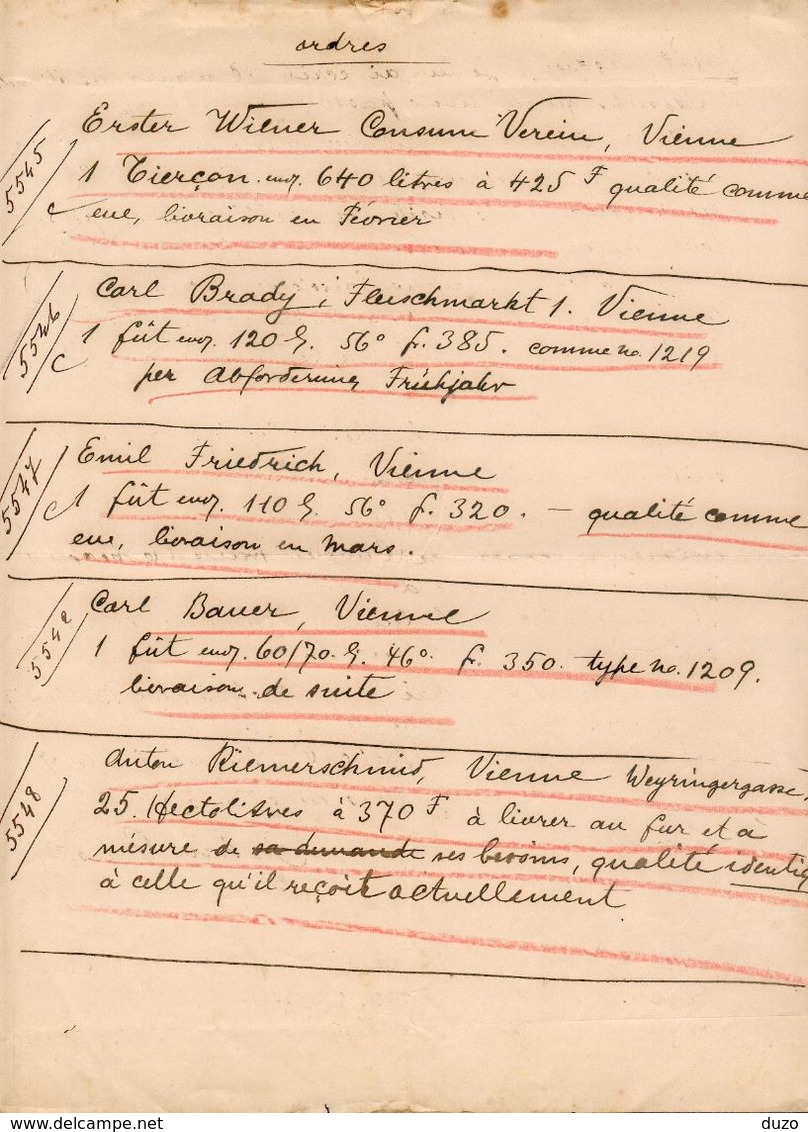 ordres
5545
Erster Wiener Consum Verein, Vienne
1 Tierçon env. 640 litres à 425 F qualité comme
eue, livraison en Février
5546
Carl Brady, Fleischmarkt 1. Vienne
1 fût env. 120 l. 56° f. 385. comme no. 1219
per Abforderung Frühjahr
5547
Emil Friedrich, Vienne
1 fût env. 110 l. 56° f. 320. — qualité comme
eue, livraison en mars.
Carl Bauer, Vienne
1 fût env. 60/70 l. 46° f. 350. type no. 1209.
livraison de suite
5548
Anton Riemerschmid, Vienne Weyringergasse.
25. Hectolitres à 370 F à livrer au fur et a
mésure de sa demande ses besoins, qualité identiq
à celle qu'il reçoit actuellement
duzo